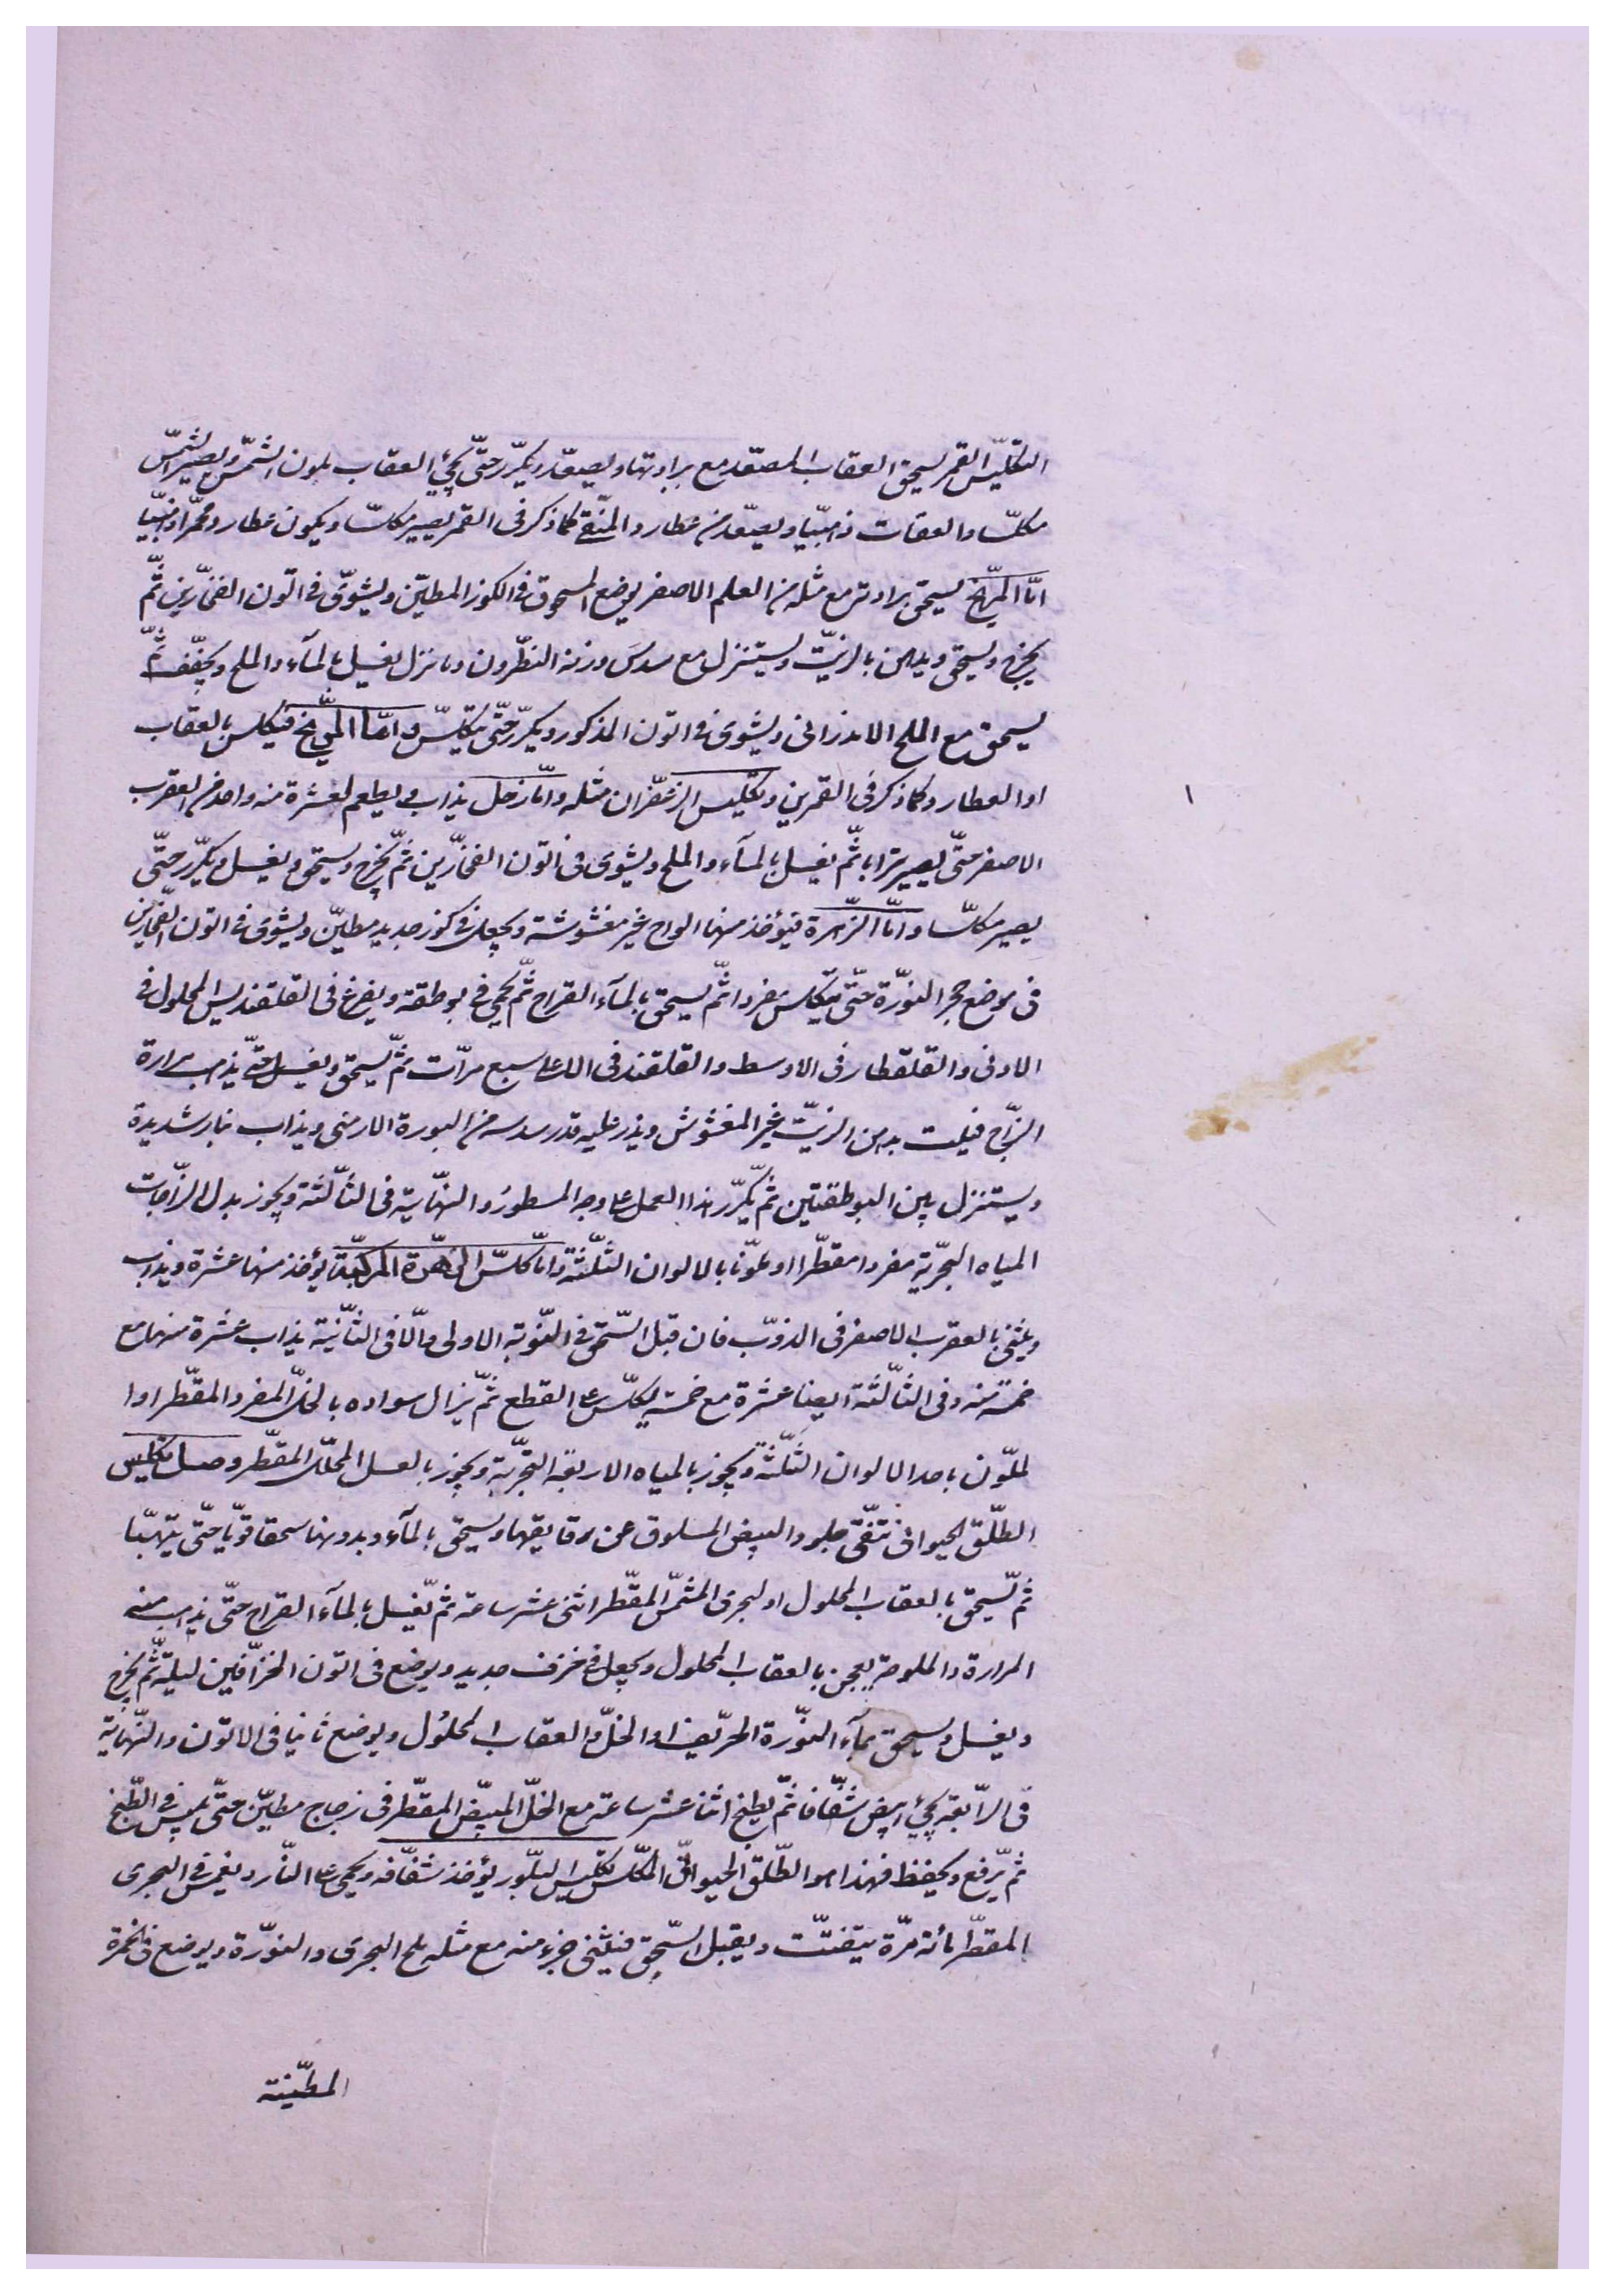 التكليس القمر يسحق العقاب المصعّد مع برادتها ويصعّد ويكرّر حتّى يجئ العقاب بلون الشمس ويصير الشمس
مكلّسا والعقاب ذهبيّا ويصعّد من عطارد المنقّى كما ذكر فى القمر يصير مكلّسا ويكون عطارد محمّرا ذهبيّا
امّا المرّيخ يسحق برادته مع مثله من العلم الاصفر يوضع المسحوق فى الكوز المطيّن ويشوّى فى اتّون الفخّارين ثمّ
يخرج ويسحق ويدهن بالزيت ويستنزل مع سدس وزنه النطرون وما نزل يغسل بالماء والملح ويجفّف ثمّ
يسحق مع الملح الاندرانى ويشوى فى اتون المذكور ويكرّر حتّى يتكلّس وامّا المرّيخ فيكلس بالعقاب
او العطارد كما ذكر فى القمرين وتكليس الزعفران مثله وامّا زحل يذاب ويطعم لعشرة منه واحد من العقرب
الاصفر حتّى يصير ترابا ثمّ يغسل بالماء والملح ويشوى فى اتون الفخّارين ثمّ يخرج ويسحق ويغسل ويكرّر حتّى
يصير مكلّسا وامّا الزّهرة فيؤخذ منها الواح غير مغشوشة ويجعل فى كوز جديد مطيّن ويشوى فى اتون الفخّارين
فى موضع حجر النورة حتّى يتكلس مفردا ثمّ يسحق بالماء القراح ثمّ يحمى فى بوطقة ويفرغ فى القلقنديس المحلول فى
الادنى والقلقطار فى الاوسط والقلقند فى الاعلى سبع مرّات ثمّ يسحق ويغسل حتّى يذهب مرارة
الزّاج فيلت بدهن الزيت غير المغشوش ويذر عليه قدر سدسه من البورة الارمنى ويذاب بنار شديدة
ويستنزل بين البوطقتين ثمّ يكرّر هذا العمل على وجه المسطور والنهاية فى الثالثة ويجوز بدل الزّاجات
المياه البحريّة مفردا مقطّرا او ملوّنا بالالوان الثلثة وامّا كلس الزهرة المركبة يؤخذ منها عشرة ويذاب
ويثنى بالعقرب الاصفر فى الذوب فان قبل السحق فى النوبة الاولى والّا فى الثانية يذاب عشرة منها مع
خمسة منه وفى الثالثة ايضا عشرة مع خمسة يكلّس على القطع ثمّ يزال سواده بالخلّ المفرد المقطّر او ا
لملوّن باحد الالوان الثلثة ويجوز بالمياه الاربعة البحريّة ويجوز بالعسل المحلّل المقطّر وصل تكليس
الطلق الحيوانى تنقّى جلود البيض المسلوق عن رقايقها ويسحق بالماء وبدونها سحقا قويّا حتّى يتهبّا
ثمّ يسحق بالعقاب المحلول او البحرى المشمّس المقطّر اثنى عشر ساعة ثمّ يغسل بالماء القراح حتّى يذهب منه
المرارة والملوحة يعجن بالعقاب المحلول ويجعل فى خزف جديد ويوضع فى اتون الخزّافين ليلة ثمّ يخرج
ويغسل ويسحق بماء النورة الحرّيف او الخلّ والعقاب المحلول ويوضع ثانيا فى الاتون والنهاية
فى الرابعة يجئ ابيض شفّافا ثمّ يطبخ اثنا عشر ساعة مع الخلّ المبيّض المقطّر فى زجاج مطيّن حتّى ييبس فى الطبخ
ثمّ يرفع ويحفظ فهذا هو الطلق الحيوانى المكلّس تكليس البلّور يؤخذ شفّافه ويحمى على النار ويغمس فى البحرى
المقطّر مائة مرّة يتفتّت ويقبل السحق فيثنى جزء منه مع مثله ملح البحرى والنورة ويوضع فى الخمرة
المطيّنة
١